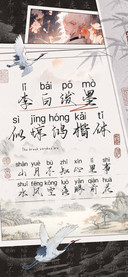 lǐ bái pō mò
李白泼墨
sì jīng hóng kǎi tǐ
似惊鸿楷体
shān yuè bù zhī xīn lǐ shì
山月不知心里事
shuǐ fēng kōng luò yǎn qián huā
水风空落眼前花